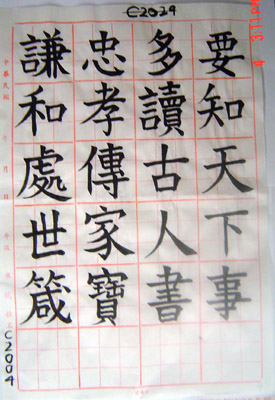 C2029
要知天下事
多讀古人書
忠孝傳家寶
謙和處世箴
C2004
中華民國 年 月 日